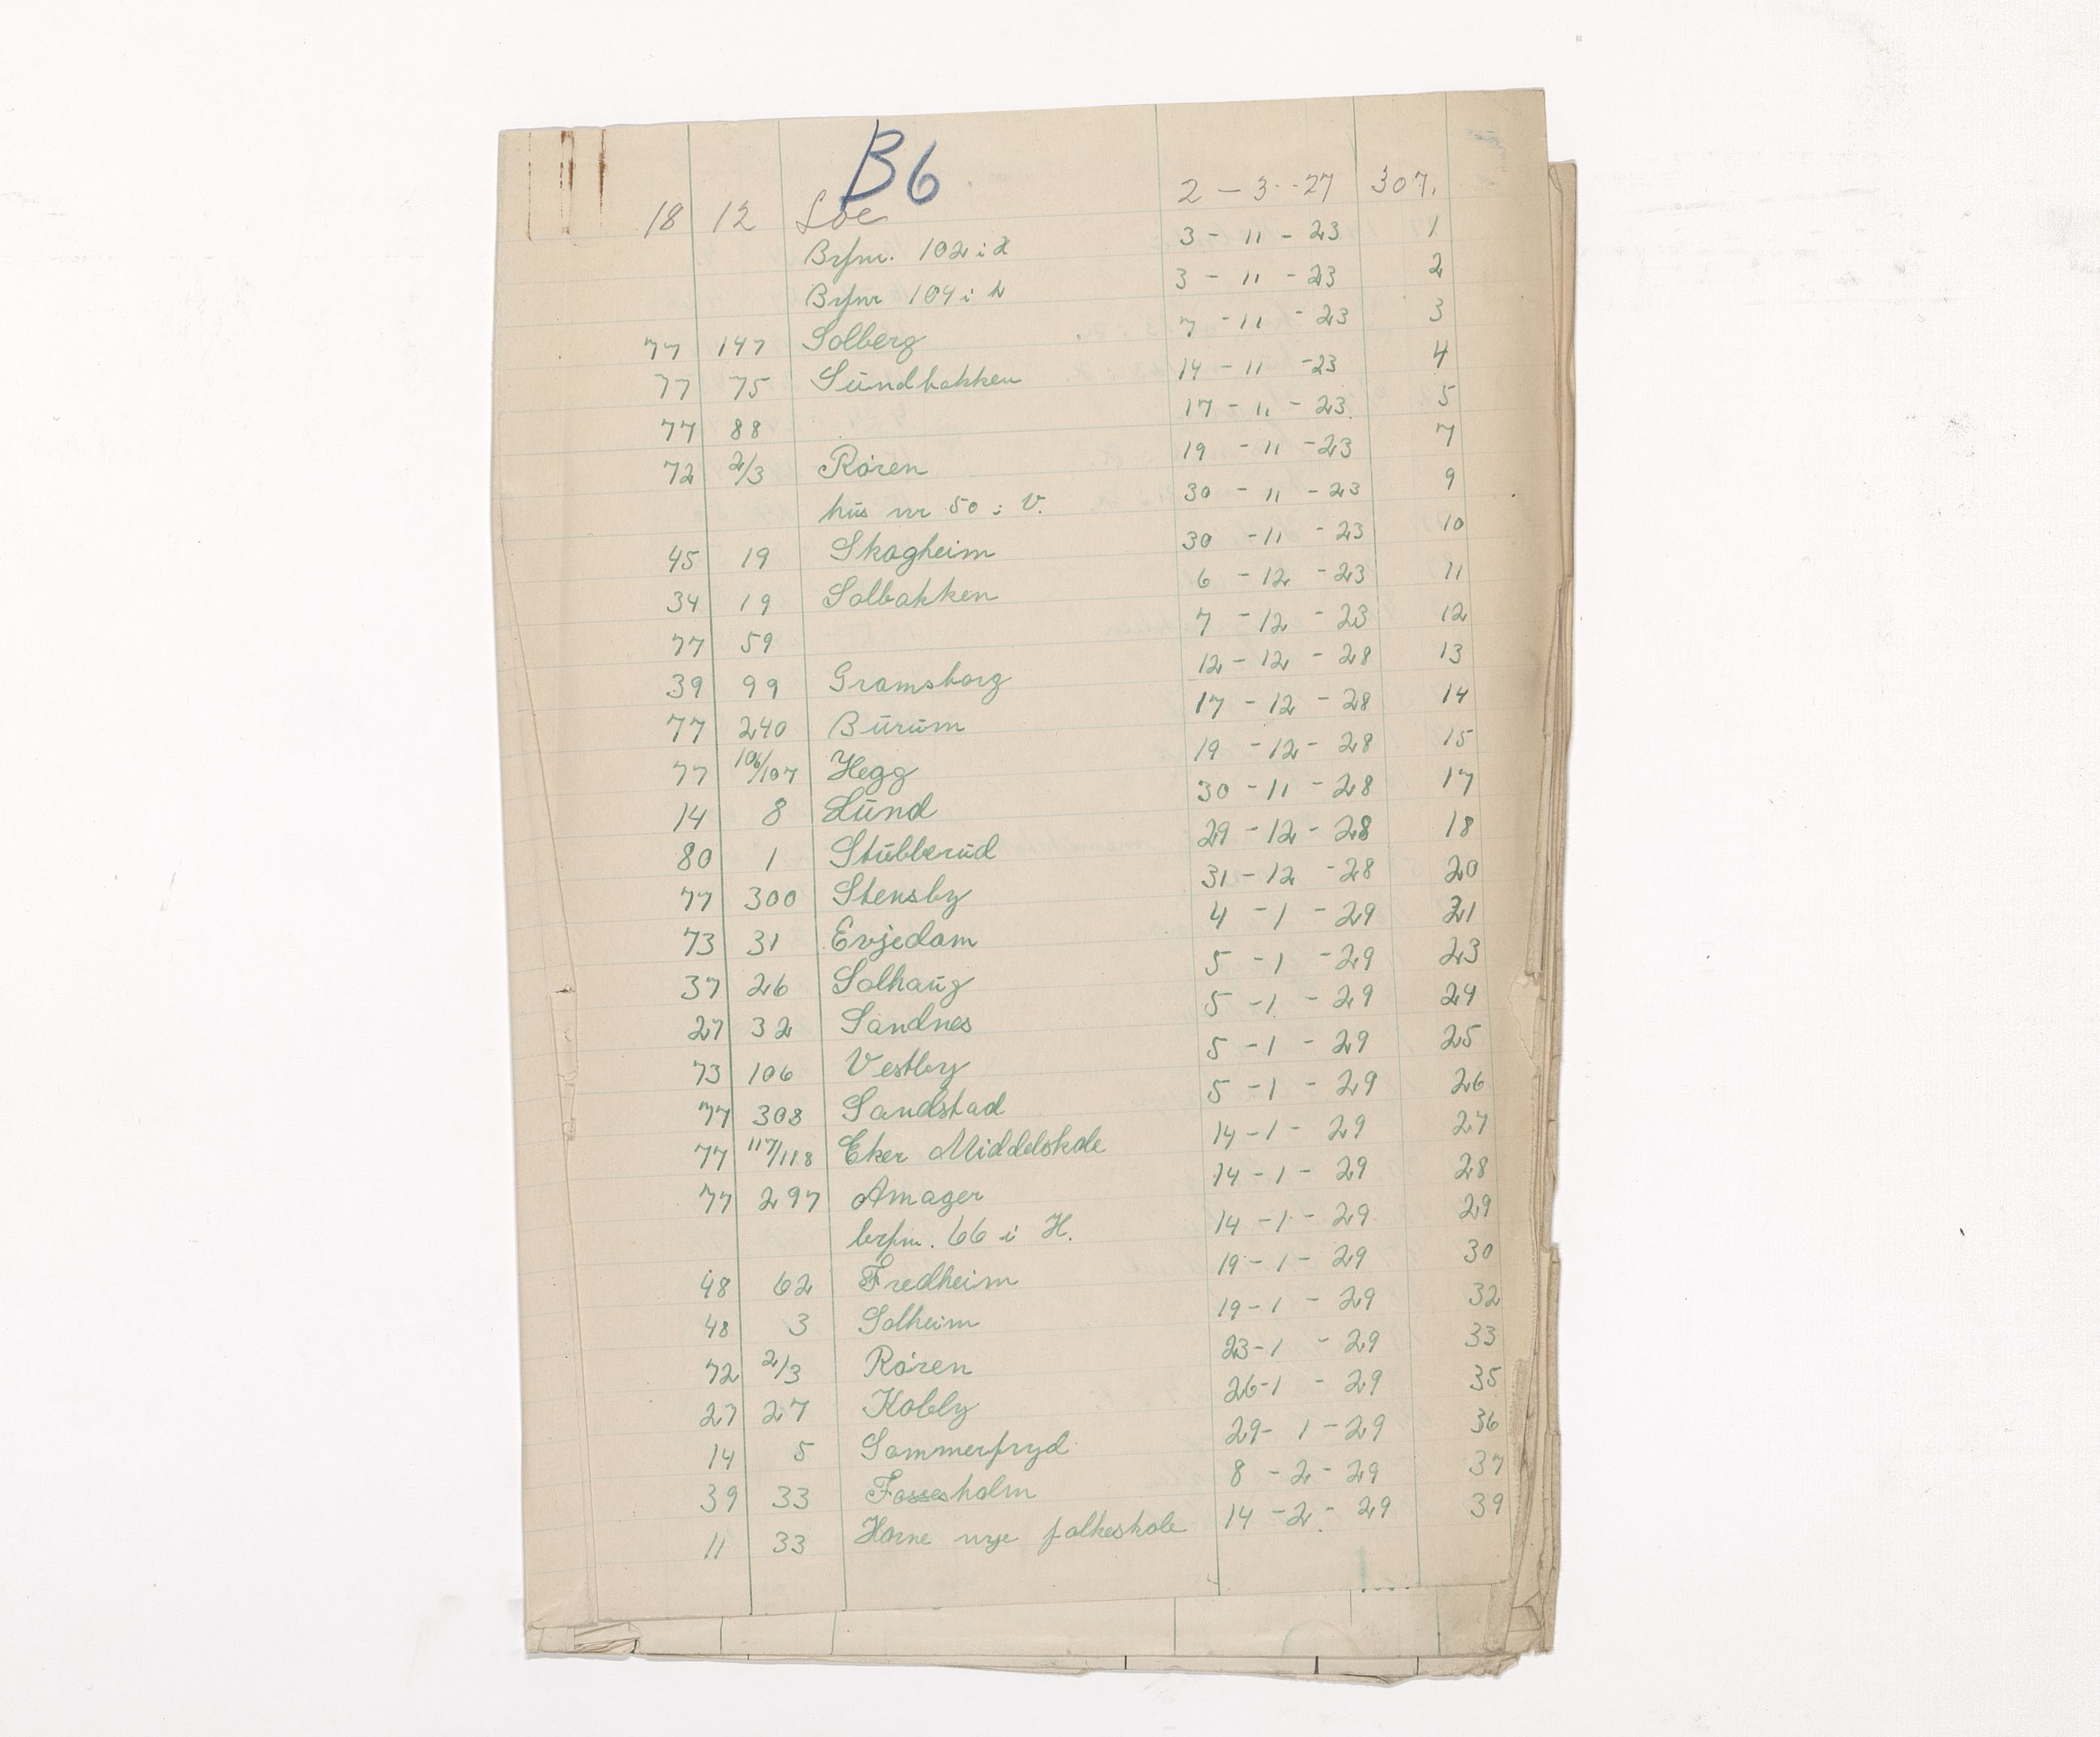 B6
18 12 Loe 2 - 3 - 27 307.
Brfnr. 102 i 3 - 11 - 23 1
Brfnr 104 i 3 - 11 - 23 2
77 147 Solberg 7 - 11 - 23 3
77 75 Sundbakken 14 - 11 - 23 4
77 88 17 - 11 - 23. 5
72 2/3 Røren 19 - 11 - 23 7
hus nr 50 i V. 30 - 11 - 23 9
45 19 Skogheim 30 - 11 - 23 10
34 19 Solbakken 6 - 12 - 23 11
77 59 7 - 12 - 23 12
39 99 Gramsborg 12 - 12 - 28 13
77 240 Burum 17 - 12 - 28 14
77 106/107 Hegg 19 - 12 - 28 15
14 8 Lund 30 - 11 - 28 17
80 1 Stubberud 29 - 12 - 28 18
77 300 Stensby 31 - 12 - 28 20
73 31 Evjedam 4 - 1 - 29 21
37 26 Solhaug 5 - 1 - 29 23
27 32 Sandnes 5 - 1 - 29 24
73 106 Vestby 5 - 1 - 29 25
77 308 Sandstad 5 - 1 - 29 26
77 117/118 Eker Middelskole 14 - 1 - 29 27
77 297 Amager 14 - 1 - 29 28
brfnr. 66 i H. 14 - 1 - 29 29
48 62 Fredheim 19 - 1 - 29 30
48 3 Solheim 19 - 1 - 29 32
72 2/3 Røren 23 - 1 - 29 33
27 27 Kobly 26 - 1 - 29 35
14 5 Sommerfryd 29 - 1 - 29 36
39 33 Fossesholm 8 - 2 - 29 37
11 33 Horne nye folkeskole 14 - 2 - 29 39